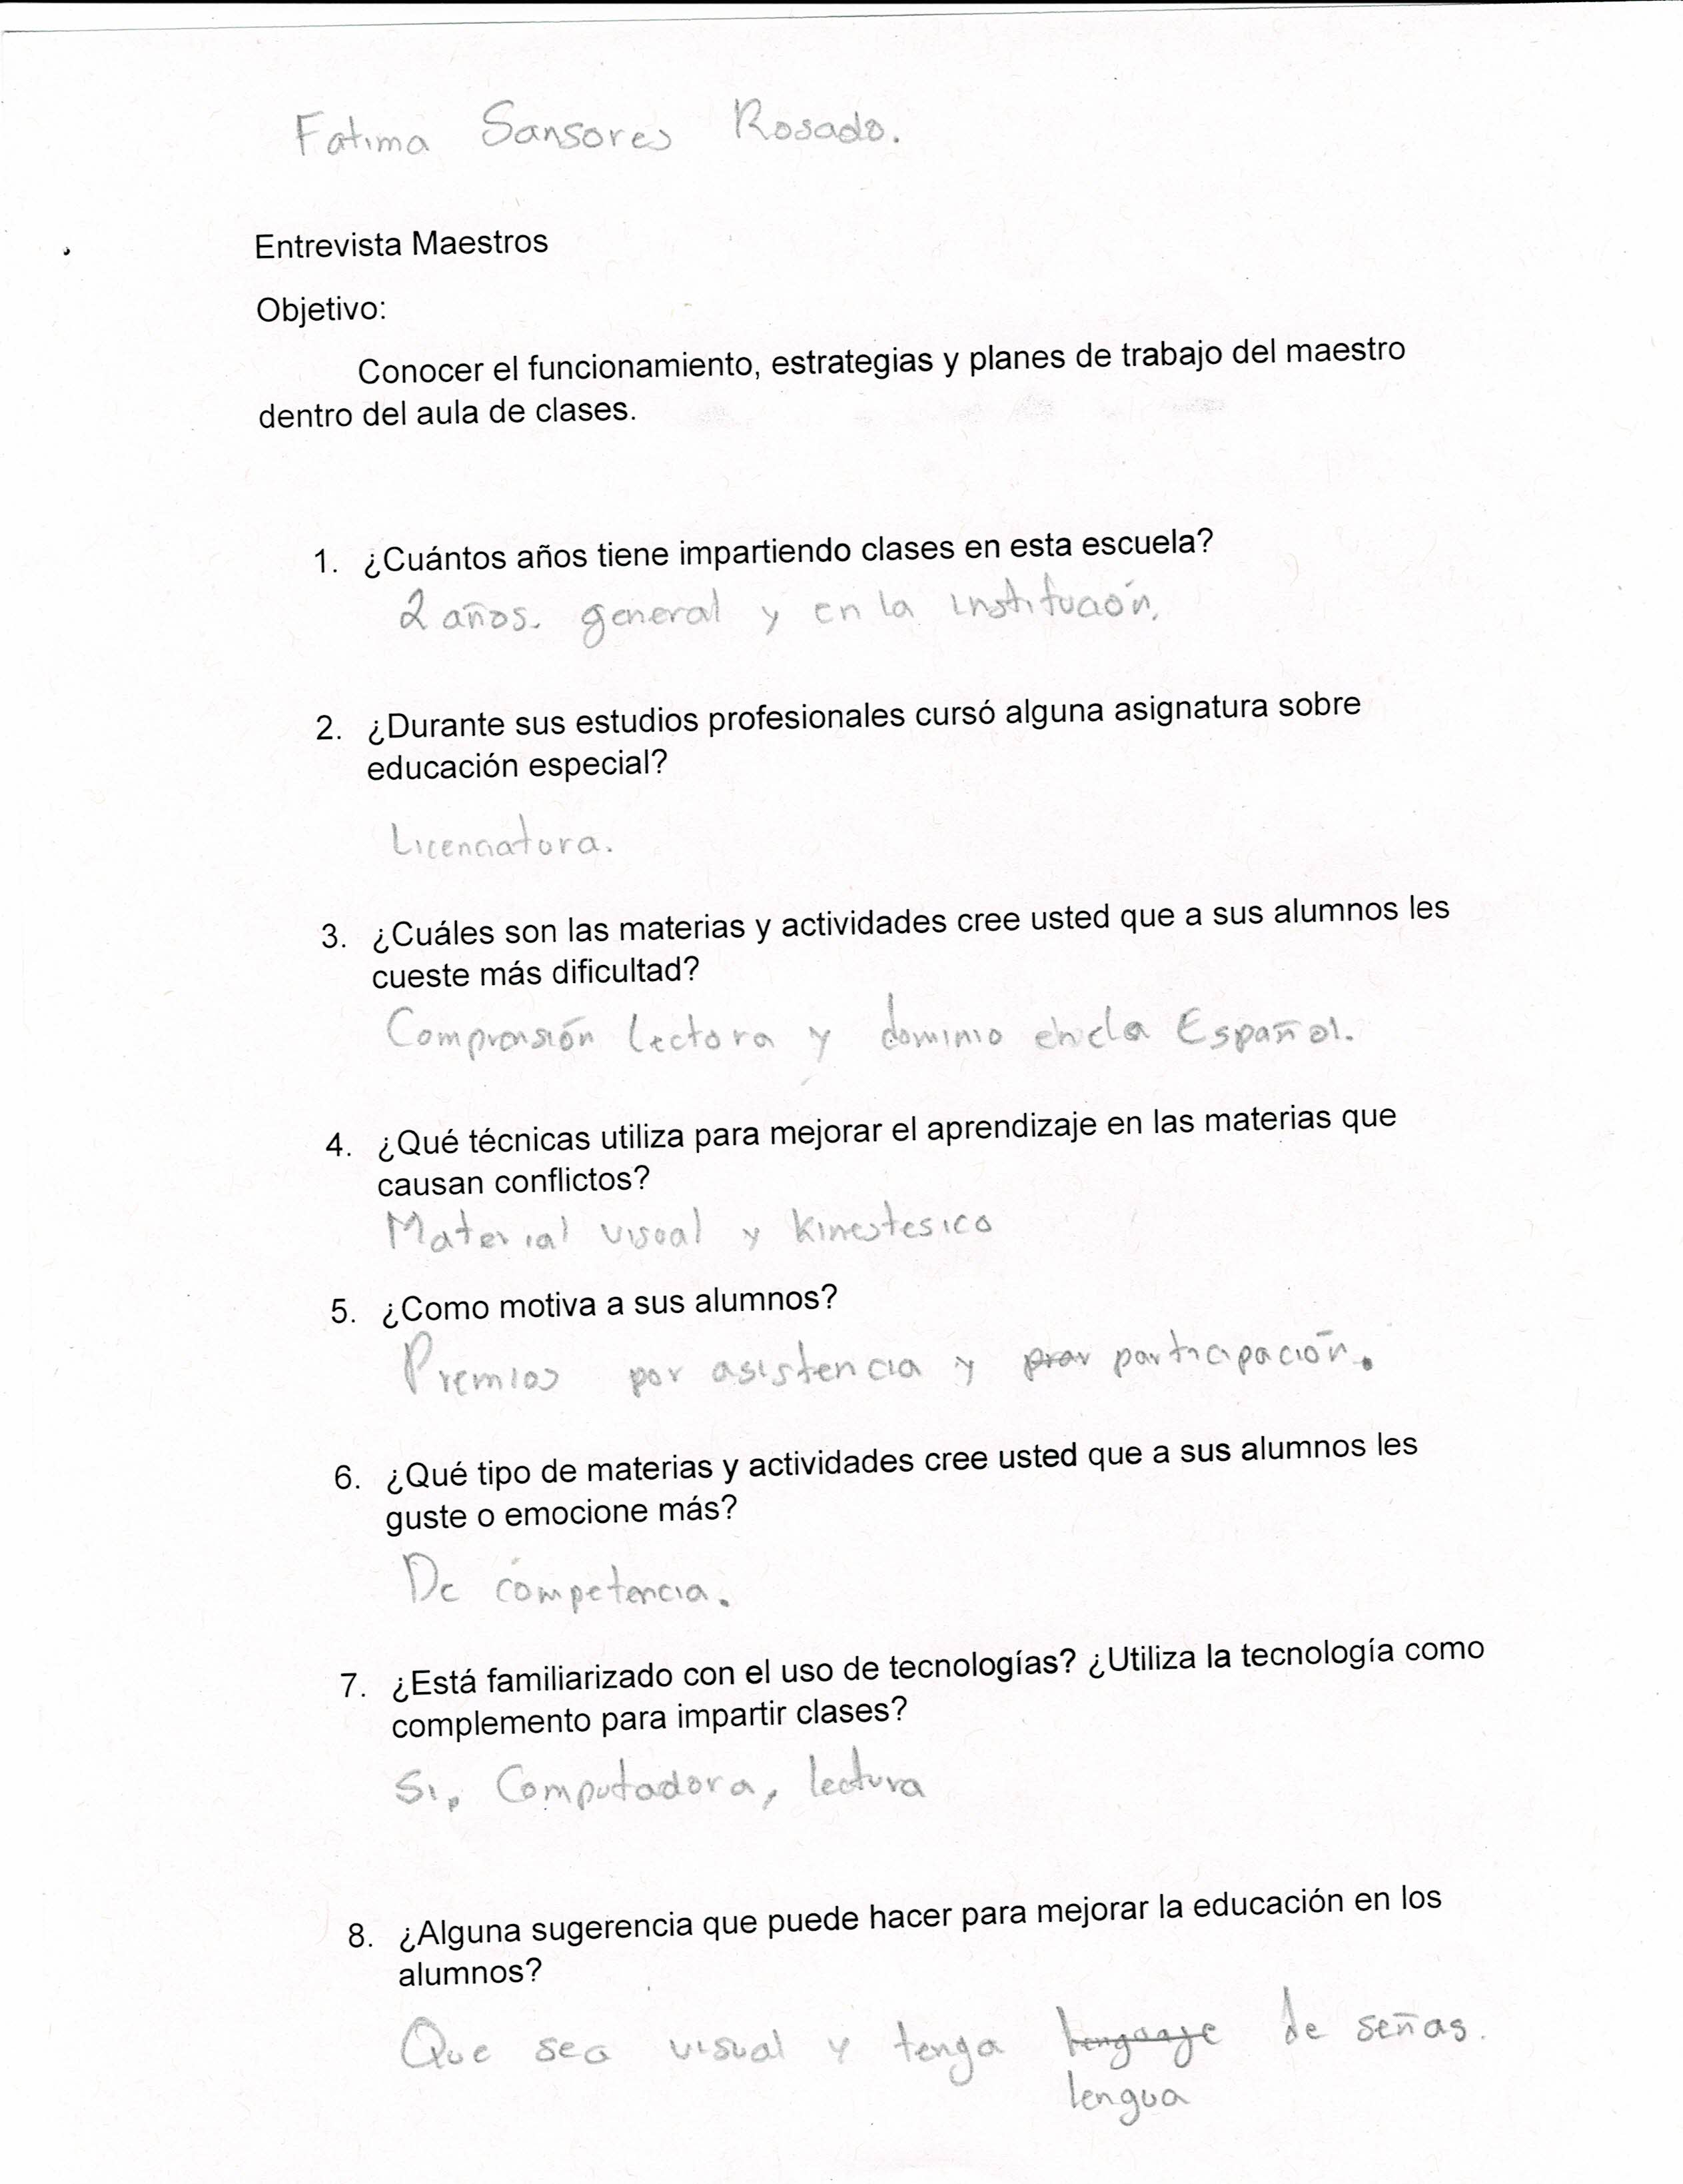 Fatima Sansores Rosado.
Entrevista Maestros
Objetivo:
Conocer el funcionamiento, estrategias y planes de trabajo del maestro
dentro del aula de clases.
1. ¿Cuántos años tiene impartiendo clases en esta escuela?
2 años. general y en la institución.
2. ¿Durante sus estudios profesionales cursó alguna asignatura sobre
educación especial?
Licenciatura.
3. ¿Cuáles son las materias y actividades cree usted que a sus alumnos les
cueste más dificultad?
Comprensión lectora y dominio Español.
4. ¿Qué técnicas utiliza para mejorar el aprendizaje en las materias que
causan conflictos?
Material visual y kinestesico
5. ¿Como motiva a sus alumnos?
Premios por asistencia y participación.
6. ¿Qué tipo de materias y actividades cree usted que a sus alumnos les
guste o emocione más?
De competencia.
7. ¿Está familiarizado con el uso de tecnologías? ¿Utiliza la tecnología como
complemento para impartir clases?
Si, Computadora, lectura
8. ¿Alguna sugerencia que puede hacer para mejorar la educación en los
alumnos?
Que sea visual y tenga lenguaje de señas.
lengua